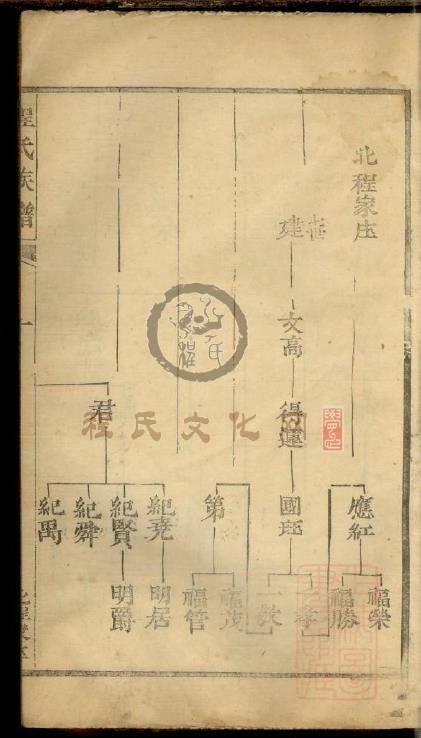 北程家庄
福榮
應紅
福勝
七世
建
文高
得蓮
國珏
孝
欽
第
福茂
福管
君
紀堯
明居
紀賢
明爵
紀舜
紀禹
程氏族譜
程氏文化网